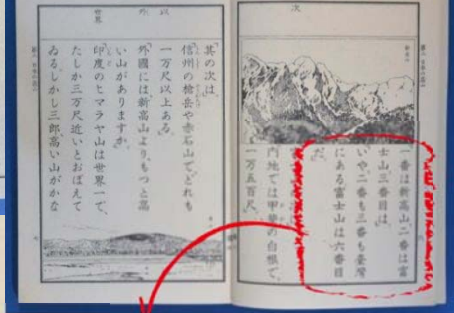 次
一番は新高山、二番は富
士山三番目は。
いや、二番も三番も臺灣
にある富士山は六番目
だ。
内地では甲斐の白根で、
一万五百尺。
以
外
世界
其の次は。
信州の槍岳や赤石山で、どれも
一万尺以上ある。
外國には、新高山より、もつと高
い山がありますか。
印度のヒマラヤ山は世界一で、
たしか三万尺近いとおぼえて
ゐる。しかし三郎、高い山がかな